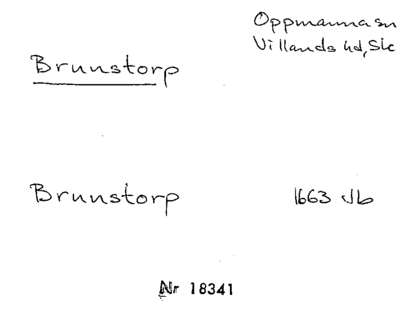 Oppmanna sn
Villands hd, Sk
Brunstorp
Brunstorp 1663 Jb
Nr 18341